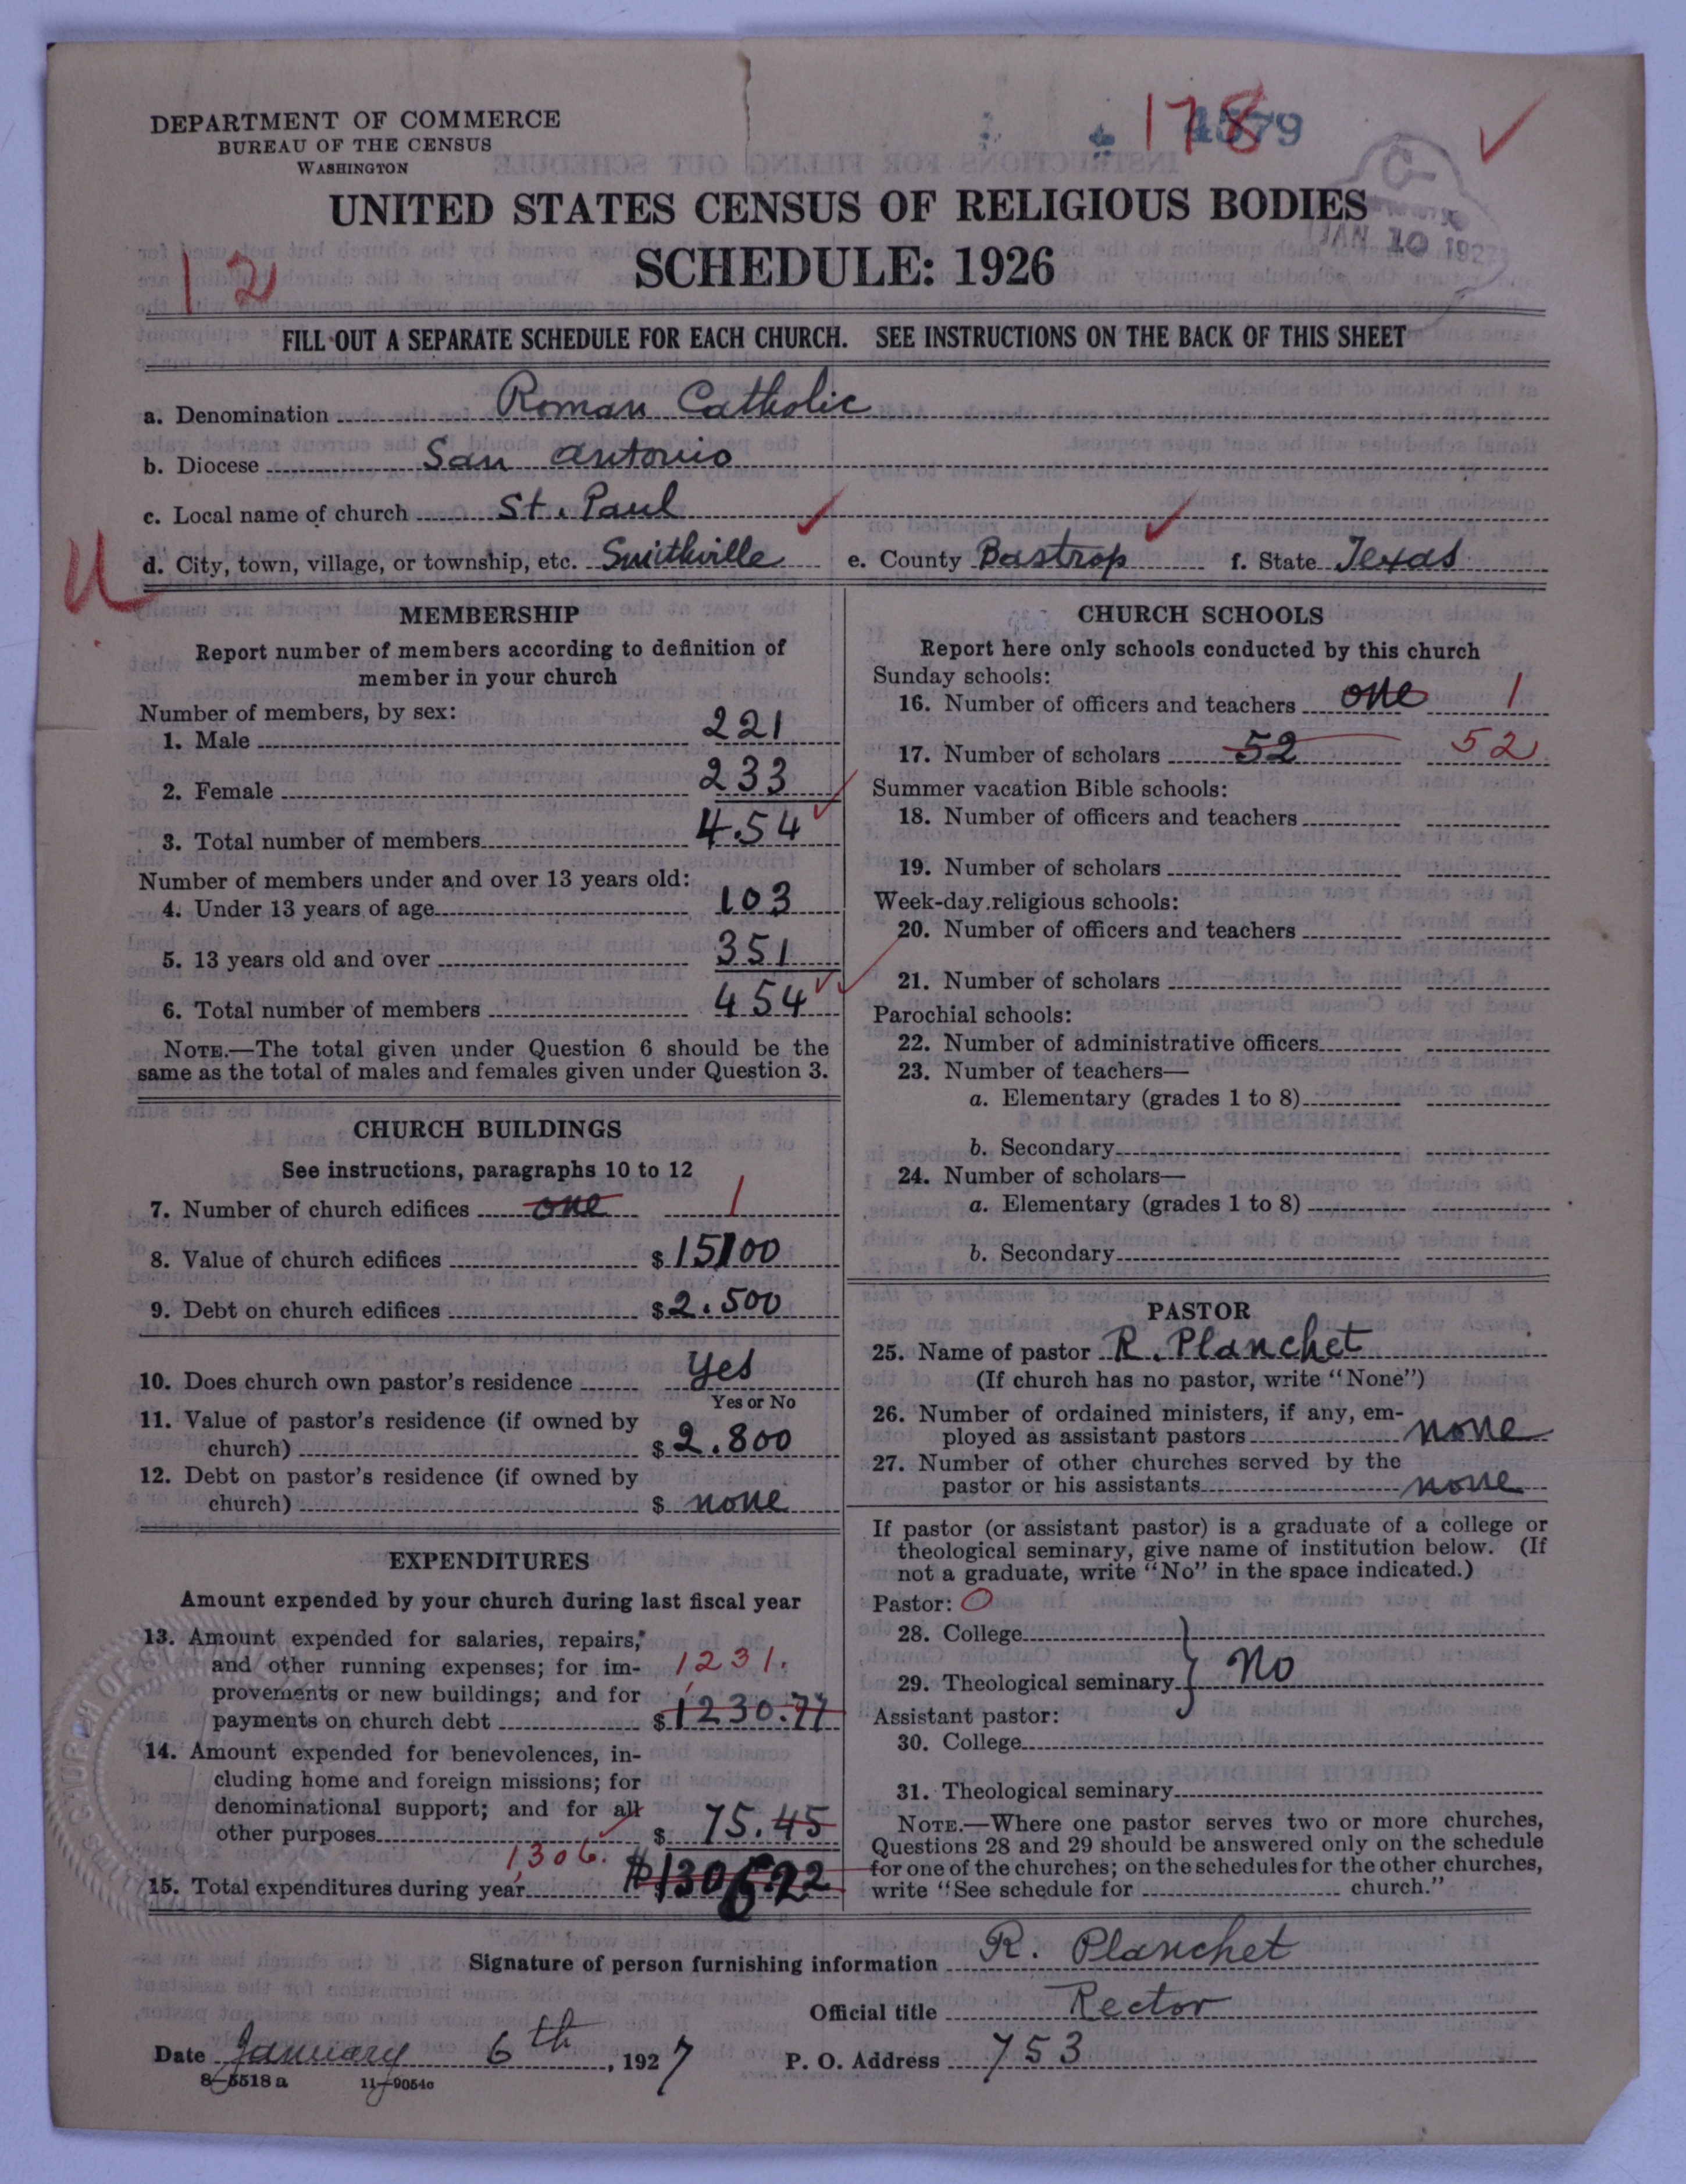 DEPARTMENT OF COMMERCE
BUREAU OF THE CENSUS
WASHINGTON
178
4579
JAN 10 1927
UNITED STATES CENSUS OF RELIGIOUS BODIES
SCHEDULE: 1926
12
FILL OUT A SEPARATE SCHEDULE FOR EACH CHURCH. SEE INSTRUCTIONS ON THE BACK OF THIS SHEET
a. Denomination Roman Catholic
b. Diocese San Antonio
c. Local name of church St. Paul
U
d. City, town, village, or township, etc. Smithville e. County Bastrop f. State Texas
MEMBERSHIP
Report number of members according to definition of
member in your church
Number of members, by sex:
1. Male 221
2. Female 233
3. Total number of members 454
Number of members under and over 13 years old:
4. Under 13 years of age 103
5. 13 years old and over 351
6. Total number of members 454
NOTE.—The total given under Question 6 should be the
same as the total of males and females given under Question 3.
CHURCH BUILDINGS
See instructions, paragraphs 10 to 12
7. Number of church edifices one 1
8. Value of church edifices $15100
9. Debt on church edifices $2.500
10. Does church own pastor's residence yes
Yes or No
11. Value of pastor's residence (if owned by
church) $2.800
12. Debt on pastor's residence (if owned by
church) $ none
EXPENDITURES
Amount expended by your church during last fiscal year
13. Amount expended for salaries, repairs,
and other running expenses; for im- 1231.
provements or new buildings; and for
payments on church debt $1230.77
14. Amount expended for benevolences, in-
cluding home and foreign missions; for
denominational support; and for all
other purposes $ 75.45
1306.
15. Total expenditures during year $1306.22
CHURCH SCHOOLS
Report here only schools conducted by this church
Sunday schools:
16. Number of officers and teachers one 1
17. Number of scholars 52 52
Summer vacation Bible schools:
18. Number of officers and teachers
19. Number of scholars
Week-day religious schools:
20. Number of officers and teachers
21. Number of scholars
Parochial schools:
22. Number of administrative officers
23. Number of teachers—
a. Elementary (grades 1 to 8)
b. Secondary
24. Number of scholars—
a. Elementary (grades 1 to 8)
b. Secondary
PASTOR
25. Name of pastor R. Planchet
(If church has no pastor, write "None")
26. Number of ordained ministers, if any, em-
ployed as assistant pastors none
27. Number of other churches served by the
pastor or his assistants none
If pastor (or assistant pastor) is a graduate of a college or
theological seminary, give name of institution below. (If
not a graduate, write "No" in the space indicated.)
Pastor: O
28. College
29. Theological seminary No
Assistant pastor:
30. College
31. Theological seminary
NOTE.—Where one pastor serves two or more churches,
Questions 28 and 29 should be answered only on the schedule
for one of the churches; on the schedules for the other churches,
write "See schedule for church."
Signature of person furnishing information R. Planchet
Official title Rector
Date January 6th, 1927 P. O. Address 753
8-5518a 11-9054a